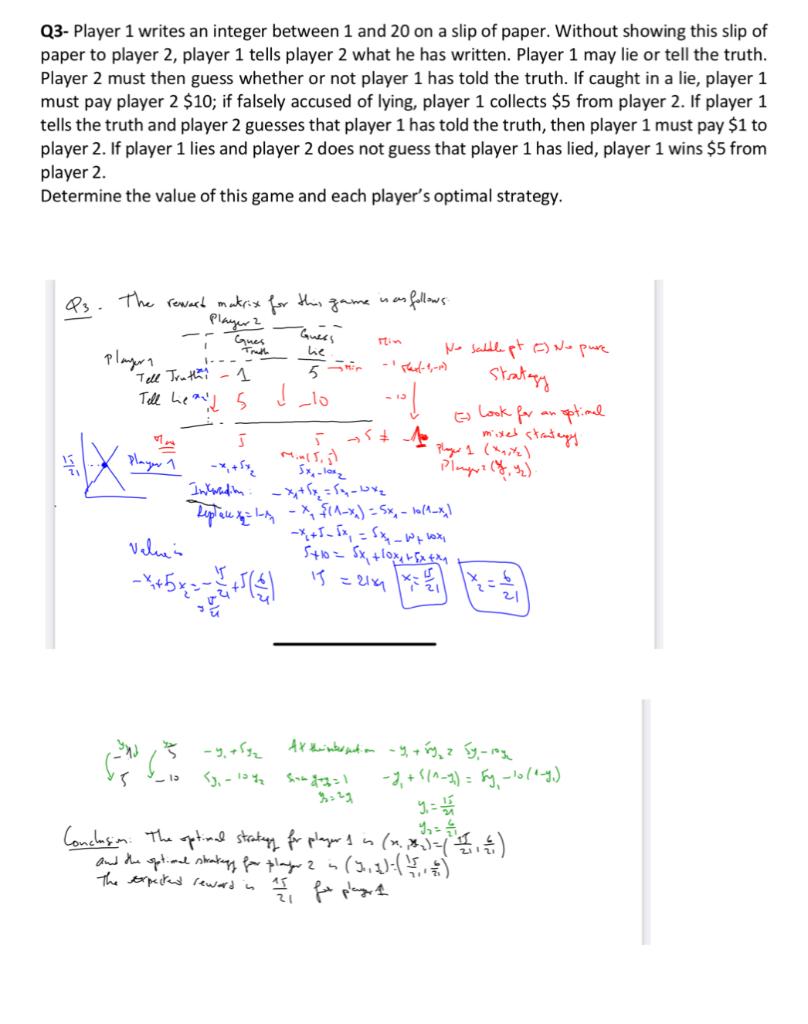 Q3- Player 1 writes an integer between 1 and 20 on a slip of paper. Without showing this slip of
paper to player 2, player 1 tells player 2 what he has written. Player 1 may lie or tell the truth.
Player 2 must then guess whether or not player 1 has told the truth. If caught in a lie, player 1
must pay player 2 $10; if falsely accused of lying, player 1 collects $5 from player 2. If player 1
tells the truth and player 2 guesses that player 1 has told the truth, then player 1 must pay $1 to
player 2. If player 1 lies and player 2 does not guess that player 1 has lied, player 1 wins $5 from
player 2.
Determine the value of this game and each player's optimal strategy.
Q3. The reward matrix for this game is as follows.
Player 2
Gues Truth
Guess Lie
Min
Player 1
Tell Truth x1 -1 5 → min -1
Tell Lie 5 -10 -10
No saddle pt ⇔ No pure
strategy
⇔ Look for an optimal
mixed strategy
Player 1 (x1, x2)
Player 2 (y1, y2)
Max 5 5 → 5 ≠ -1
Min(5,5)
15/21
Player 1 -x1+5x2 5x1-10x2
Intersection: -x1+5x2 = 5x1-10x2
Replace x2=1-x1 -x1+5(1-x1) = 5x1-10(1-x1)
-x1+5-5x1 = 5x1-10+10x1
5+10 = 5x1+10x1+5x1+x1
15 = 21x1 x1=15/21 x2=6/21
Value is
-x1+5x2 = -15/21+5(6/21)
= 15/21
y1 y2
-1 5 -y1+5y2 At the intersection -y1+5y2 = 5y1-10y2
5 -10 5y1-10y2 -y1+5(1-y1) = 5y1-10(1-y1)
y1=15/21
y2=6/21
Conclusion: The optimal strategy for player 1 is (x1, x2)=(15/21, 6/21)
and the optimal strategy for player 2 is (y1, y2)=(15/21, 6/21)
The expected reward is 15/21 for player 1